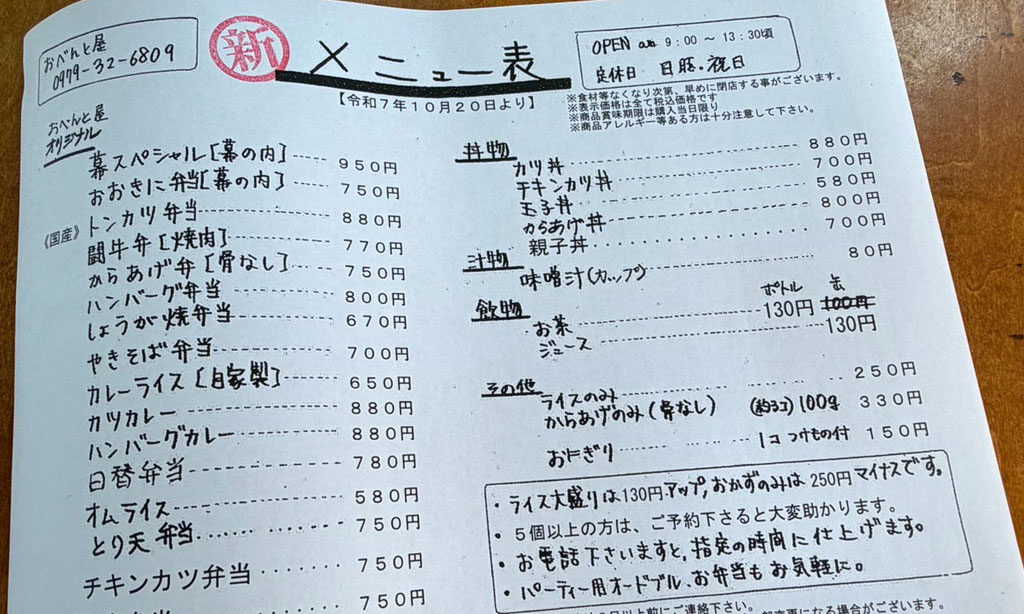 おべんと屋
0979-32-6809
新
メニュー表
【令和7年10月20日より】
OPEN am 9:00 ～ 13:30頃
定休日 日曜・祝日
※食材等なくなり次第、早めに閉店する事がございます。
※表示価格は全て税込価格です
※商品賞味期限は購入当日限り
※商品アレルギー等ある方は十分注意して下さい。
おべんと屋
オリジナル
幕スペシャル[幕の内] 950円
おおきに弁当[幕の内] 750円
《国産》トンカツ弁当 880円
闘牛弁[焼肉] 770円
からあげ弁[骨なし] 750円
ハンバーグ弁当 800円
しょうが焼弁当 670円
やきそば弁当 700円
カレーライス[自家製] 650円
カツカレー 880円
ハンバーグカレー 880円
日替弁当 780円
オムライス 580円
とり天弁当 750円
チキンカツ弁当 750円
750円
丼物
カツ丼 880円
チキンカツ丼 700円
玉子丼 580円
からあげ丼 800円
親子丼 700円
汁物
味噌汁(カップ) 80円
飲物
ボトル 缶
お茶 130円 100円
ジュース 130円
その他
ライスのみ 250円
からあげのみ(骨なし) (約3コ)100g 330円
おにぎり 1コ つけもの付 150円
・ライス大盛りは130円アップ,おかずのみは250円マイナスです。
・5個以上の方は、ご予約下さると大変助かります。
・お電話下さいますと、指定の時間に仕上げます。
・パーティー用オードブル、お弁当もお気軽に。
以上前にご連絡下さい。
変更になる場合がございます。